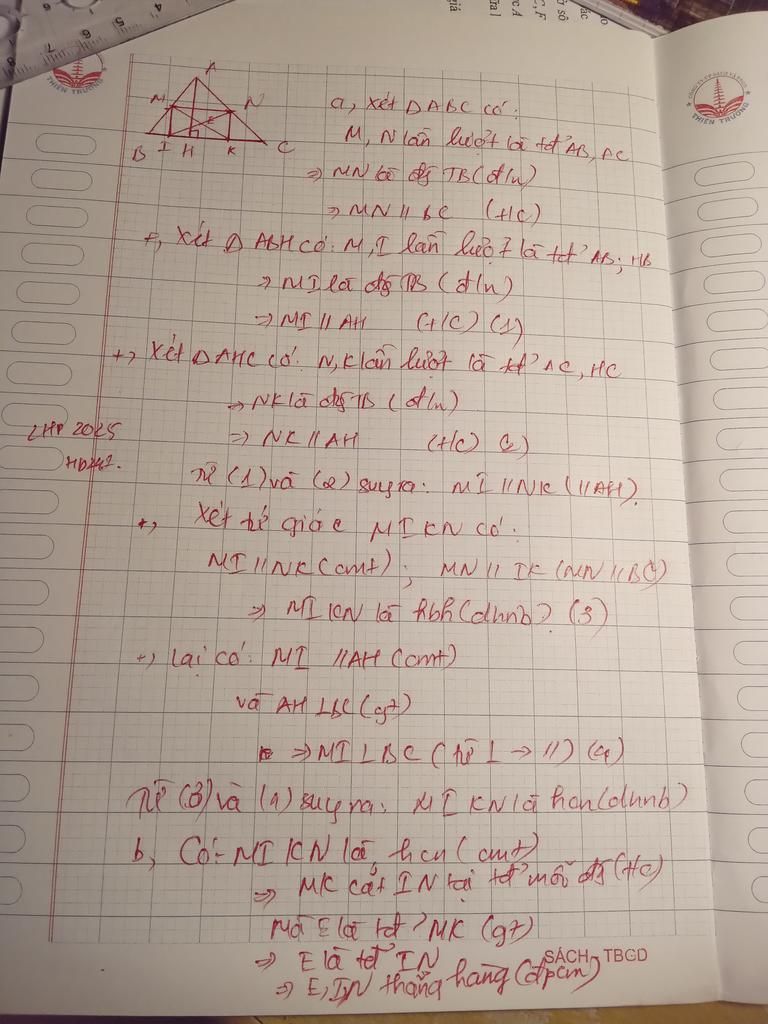 A
M
N
E
B I H K C
a, Xét ΔABC có:
M, N lần lượt là tđ' AB, AC
⇒ MN là đg TB (đ/n)
⇒ MN // BC (t/c)
+, Xét Δ ABH có: M, I lần lượt là tđ' AB; HB
⇒ MI là đg TB (đ/n)
⇒ MI // AH (t/c) (1)
+, Xét ΔAHC có: N, K lần lượt là tđ' AC, HC
⇒ NK là đg TB (đ/n)
⇒ NK // AH (t/c) 2)
Từ (1) và (2) suy ra: MI // NK (// AH).
+, Xét tứ giác MIKN có:
MI // NK (cmt); MN // IK (MN // BC)
⇒ MIKN là hbh (dhnb) (3)
+, Lại có: MI // AH (cmt)
và AH ⊥ BC (gt)
⇒ MI ⊥ BC (từ ⊥ → //) (4)
Từ (3) và (4) suy ra: MIKN là hcn (dhnb)
b, Có: MIKN là hcn (cmt)
⇒ MK cắt IN tại tđ' mỗi đg (t/c)
Mà E là tđ' MK (gt)
⇒ E là tđ' IN
⇒ E, I, N thẳng hàng (đpcm)
SÁCH TBGD
THIÊN TRƯỜNG
THIÊN TRƯỜNG